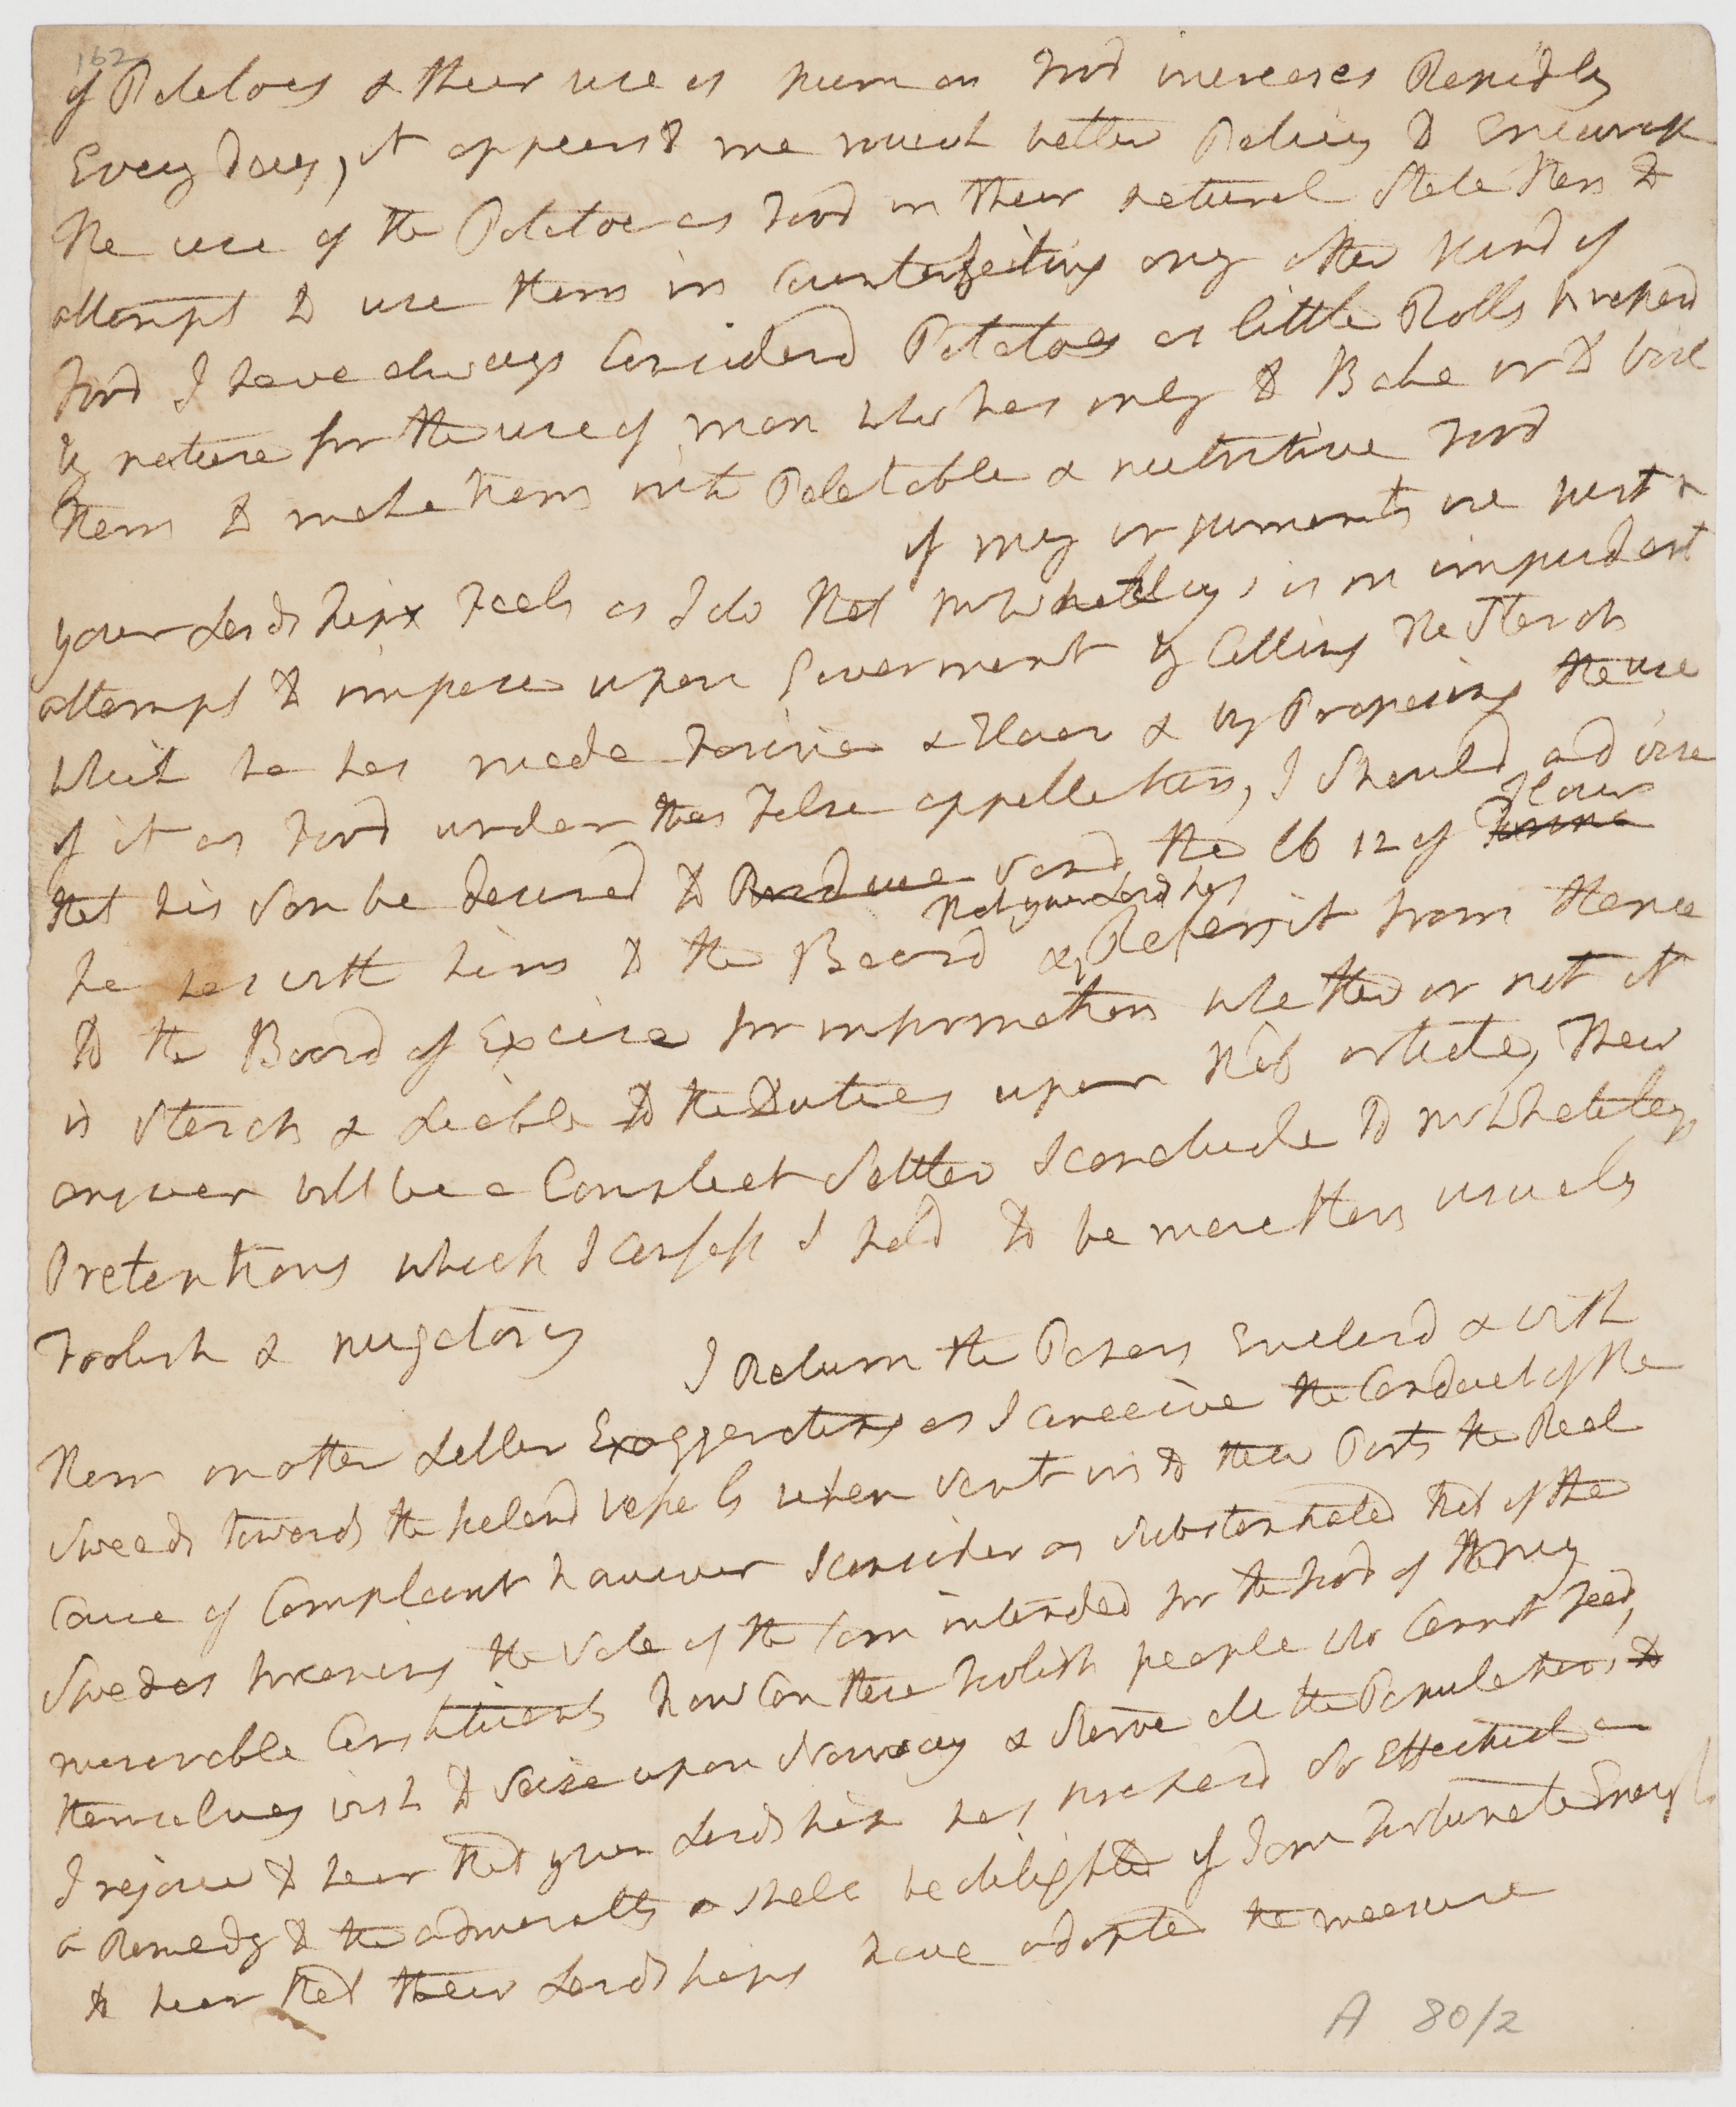 162
of Potatoes & their use as human Food increases Rapidly
Every day, it appears to me much better Policy to Encourage
the use of the Potatoe as Food in their natural State then to
attempt to use them in Counterfeiting any other kind of
Food I have always Considerd Potatoes as little Rolls prepard
by nature for the use of man who has only to Bake or to boil
them to make them into Paletable & nutritive Food
if my arguments are just &
your Lordship Feels as I do that Mr Whateley's is an impudent
attempt to impose upon Government by Calling the Starch
which he has made Farina & Flour & by Proposing the use
of it as Food under this False appellation, I should advise
Flour
that his Son be desired to Produce send the lb 12 of Farina
that your Lordships
he has with him to the Board & Refers it from thence
to the Board of Excise for information whether or not it
is Starch & Liable to the Duties upon that article, their
answer will be a Compleat Settler I conclude to Mr Whateley's
Pretentions which I confess I hold to be more then usualy
Foolish & nugatory
I Return the Papers Enclosd & with
them another Letter Exaggerating as I conceive the Conduct of the
Sweeds towards the Iceland vessels when sent into their Ports the Real
Cause of Complaint however I consider as substantiated that of the
Swedes forcing the Sale of the Corn intended for the food of the
miserable Constituents how Can these Foolish people who Cannot feed
themselves wish to Seize upon Norway & Starve all the Population
I rejoice to hear that your Lordship has proposd so Effectual
a Remedy to the admiralty & shall be delighted if I am Fortunate Enough
to hear that their Lordships have adopted the measure
A 80/2